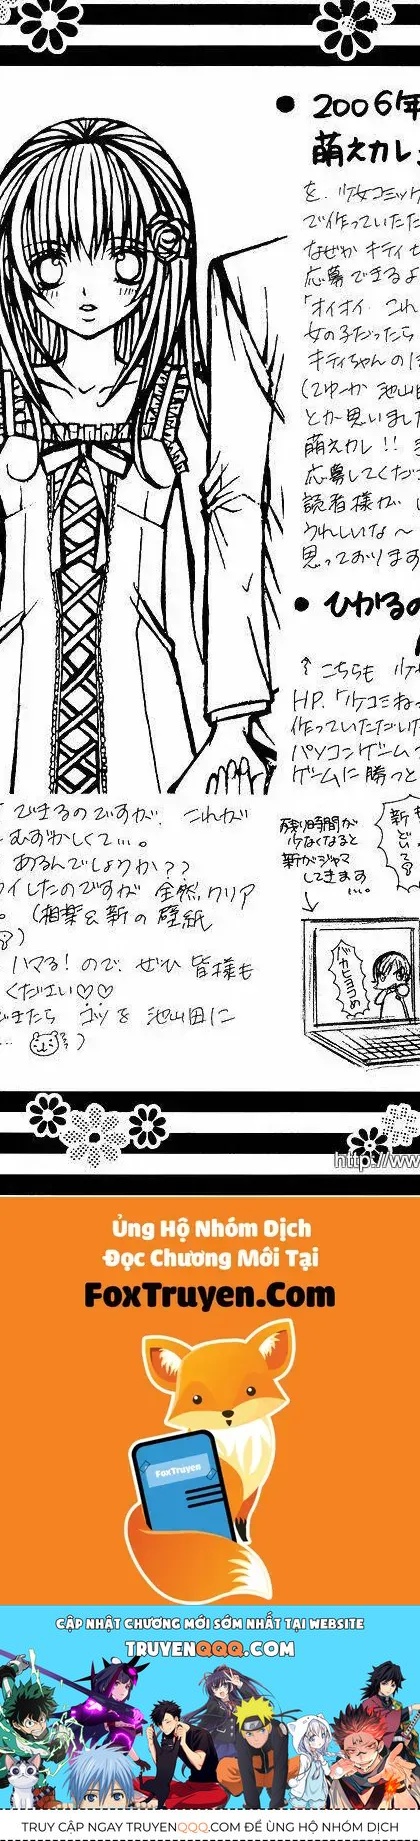 ● 2006年
萌えカレ
を、少女コミック
で作っていた
なぜか キティち
応募できるよ
「オイオイ、これ
女の子だったら
キティちゃんのに
(てゆーか 池山田
とか思いました
萌えカレ!!
応募してくだ
読者様が、
うれしいな〜
思っております
● ひかるの
↑こちらも 少
HP、「少コミねっ
作っていただいた
パソコンゲーム
ゲームに勝つと
できるのですが、これが
むずかしくて…。
あるんでしょうか??
したのですが 全然クリア
。(相葉&新の壁紙
ハマる!ので、ぜひ 皆様も
ください♡♡
できたら コツを 池山田に
残り時間が
少なくなると
新がジャマ
してきます…。
バカヒヨコめ
http://ww
Ủng Hộ Nhóm Dịch
Đọc Chương Mới Tại
FoxTruyen.Com
FoxTruyen
CẬP NHẬT CHƯƠNG MỚI SỚM NHẤT TẠI WEBSITE
TRUYENQQQ.COM
TRUY CẬP NGAY TRUYENQQQ.COM ĐỂ ỦNG HỘ NHÓM DỊCH